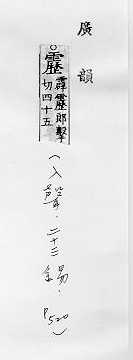 廣韻
○靂霹靂郎擊
切四十五
（入聲．二十三錫．P520）